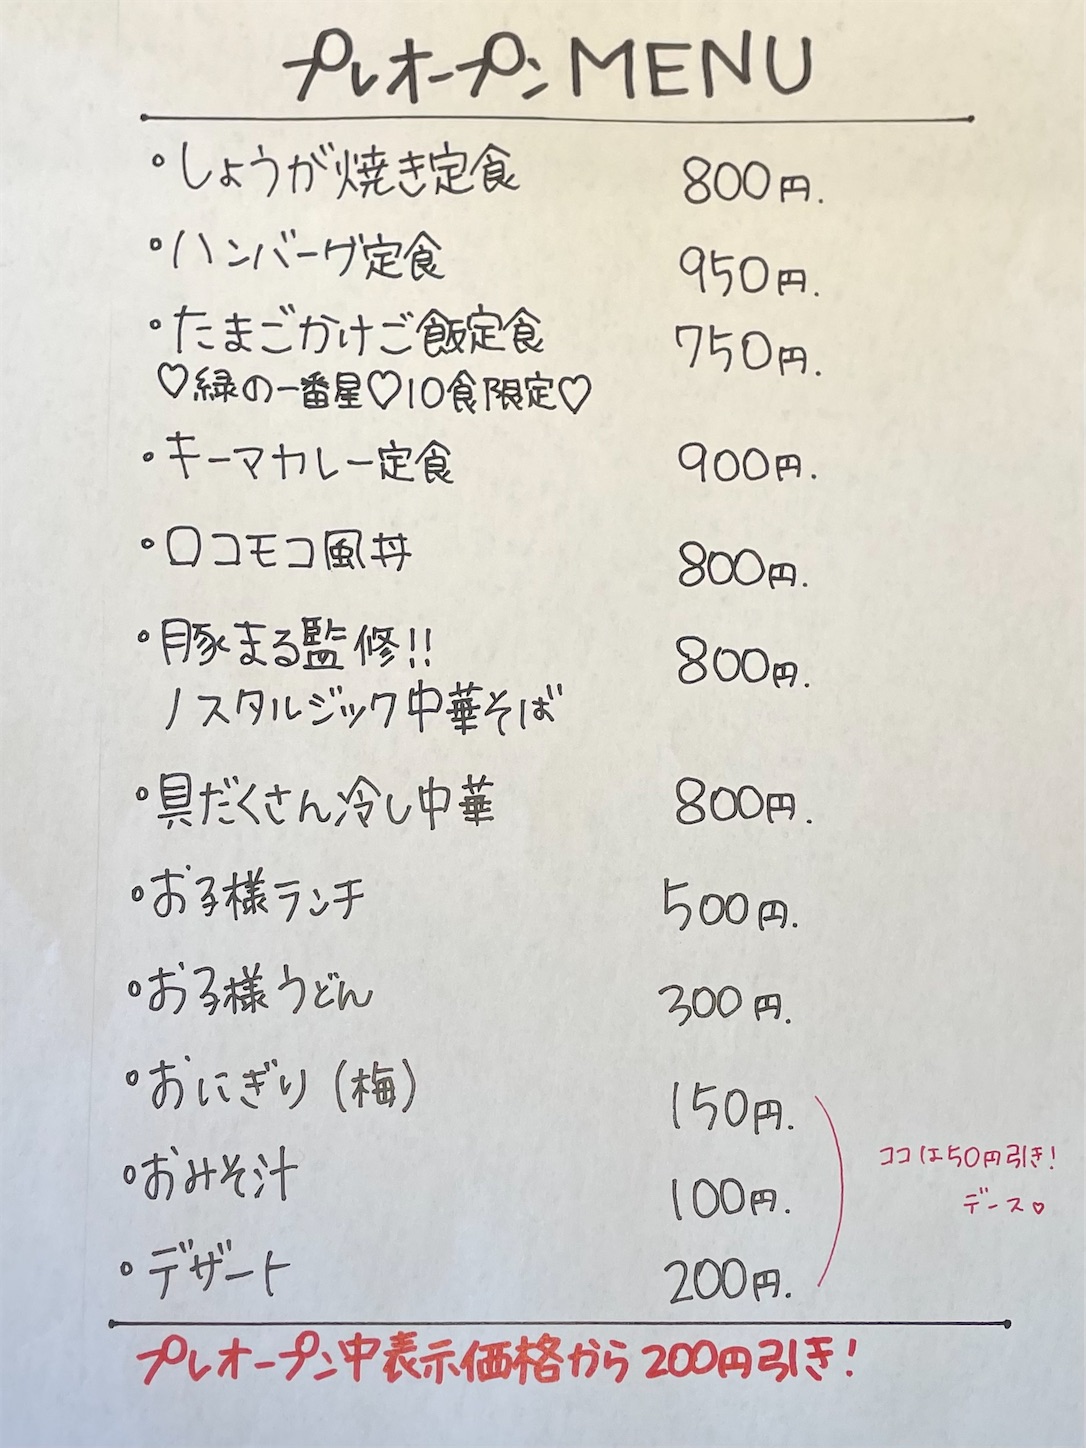 プレオープンMENU
・しょうが焼き定食 800円.
・ハンバーグ定食 950円.
・たまごかけご飯定食 750円.
♡緑の一番星♡10食限定♡
・キーマカレー定食 900円.
・ロコモコ風丼 800円.
・豚まる監修!! 800円.
ノスタルジック中華そば
・具だくさん冷し中華 800円.
・お子様ランチ 500円.
・お子様うどん 300円.
・おにぎり(梅) 150円.
・おみそ汁 100円.
・デザート 200円.
ココは50円引き!
デース♡
プレオープン中表示価格から200円引き!